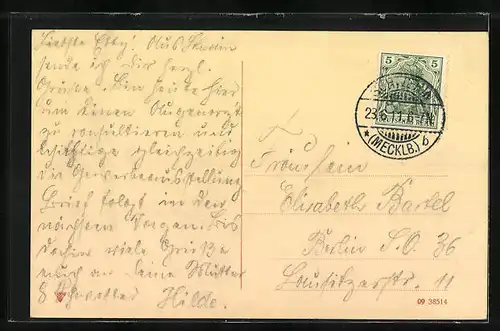 Liebste Elly! Aus Schwerin
sende ich Dir herzl.
Grüße. Bin heute hier
um einen Augenarzt
zu konsultieren und
besichtige gleichzeitig
die Gewerbeausstellung
Brief folgt in den
nächsten Tagen. Bis
dahin viele Grüße
auch an Deine Mutter
& Schwester Hilde.
5 5
(MECKLB.) b
Fräulein
Elisabeth Bartel
Berlin S.O. 36
Lausitzerstr. 11
09 38514